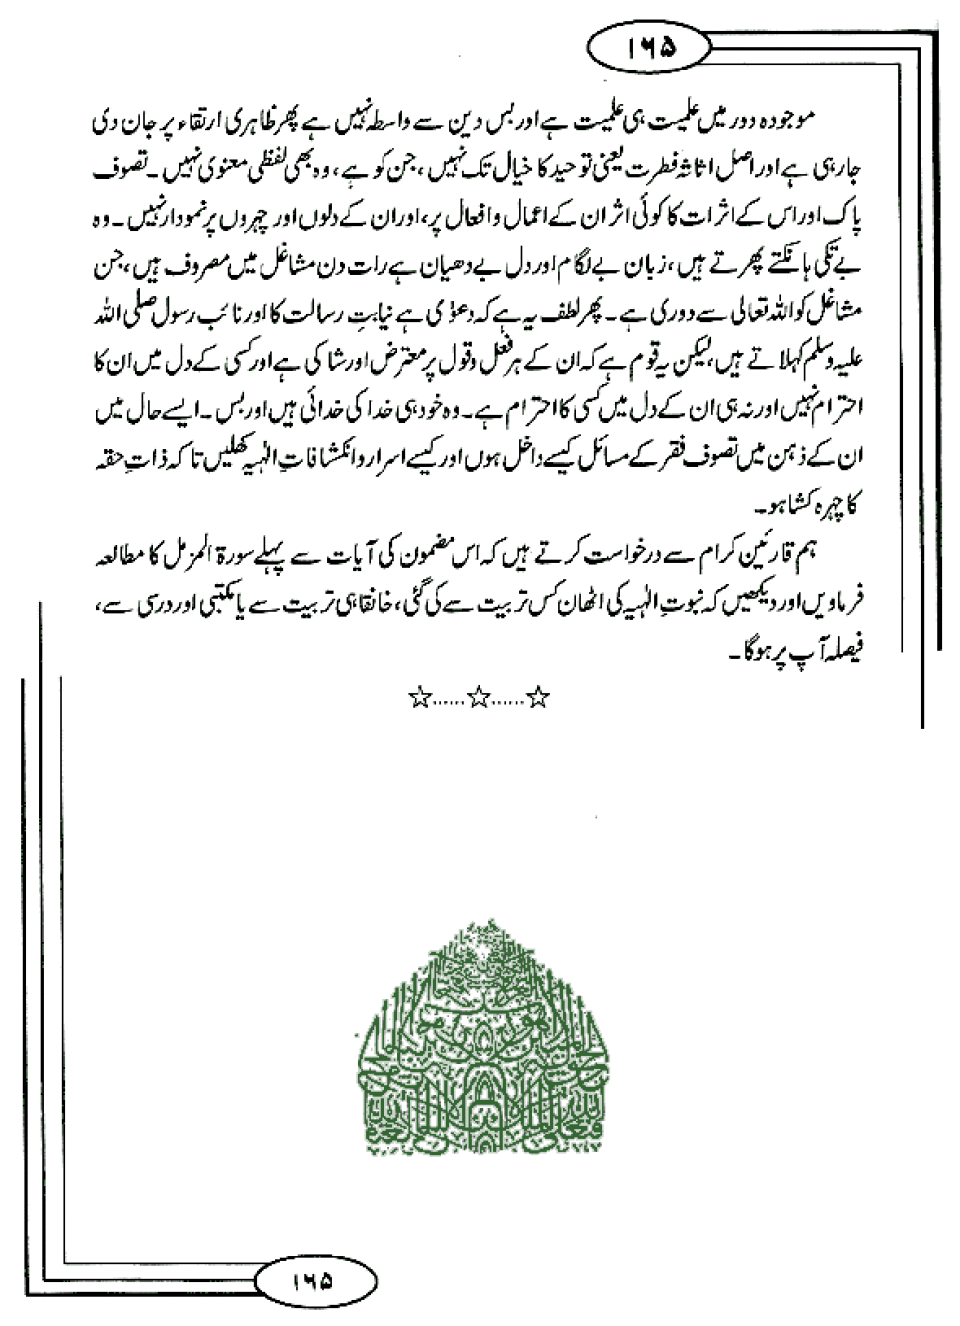 ۱۶۵
موجودہ دور میں علمیت ہی علمیت ہے اور بس دین سے واسطہ نہیں ہے پھر ظاہری ارتقاء پر جان دی
جارہی ہے اور اصل اثاثہ فطرت یعنی توحید کا خیال تک نہیں، جن کو ہے، وہ بھی لفظی معنوی نہیں۔ تصوف
پاک اور اس کے اثرات کا کوئی اثر ان کے اعمال و افعال پر، اور ان کے دلوں اور چہروں پر نمودار نہیں۔ وہ
بے تکی ہانکتے پھرتے ہیں، زبان بے لگام اور دل بے دھیان ہے رات دن مشاغل میں مصروف ہیں، جن
مشاغل کو اللہ تعالی سے دوری ہے۔ پھر لطف یہ ہے کہ دعوٰی ہے نیابتِ رسالت کا اور نائب رسول صلی اللہ
علیہ وسلم کہلاتے ہیں، لیکن یہ قوم ہے کہ ان کے ہر فعل و قول پر معترض اور شاکی ہے اور کسی کے دل میں ان کا
احترام نہیں اور نہ ہی ان کے دل میں کسی کا احترام ہے۔ وہ خود ہی خدا کی خدائی ہیں اور بس۔ ایسے حال میں
ان کے ذہن میں تصوف فقر کے مسائل کیسے داخل ہوں اور کیسے اسرار و انکشافاتِ الٰہیہ کھلیں تاکہ ذاتِ حقہ
کا چہرہ کشا ہو۔
ہم قارئین کرام سے درخواست کرتے ہیں کہ اس مضمون کی آیات سے پہلے سورۃ المزمل کا مطالعہ
فرماویں اور دیکھیں کہ نبوتِ الٰہیہ کی اٹھان کس تربیت سے کی گئی، خانقاہی تربیت سے یا مکتبی اور درسی سے،
فیصلہ آپ پر ہوگا۔
☆……☆……☆
۱۶۵